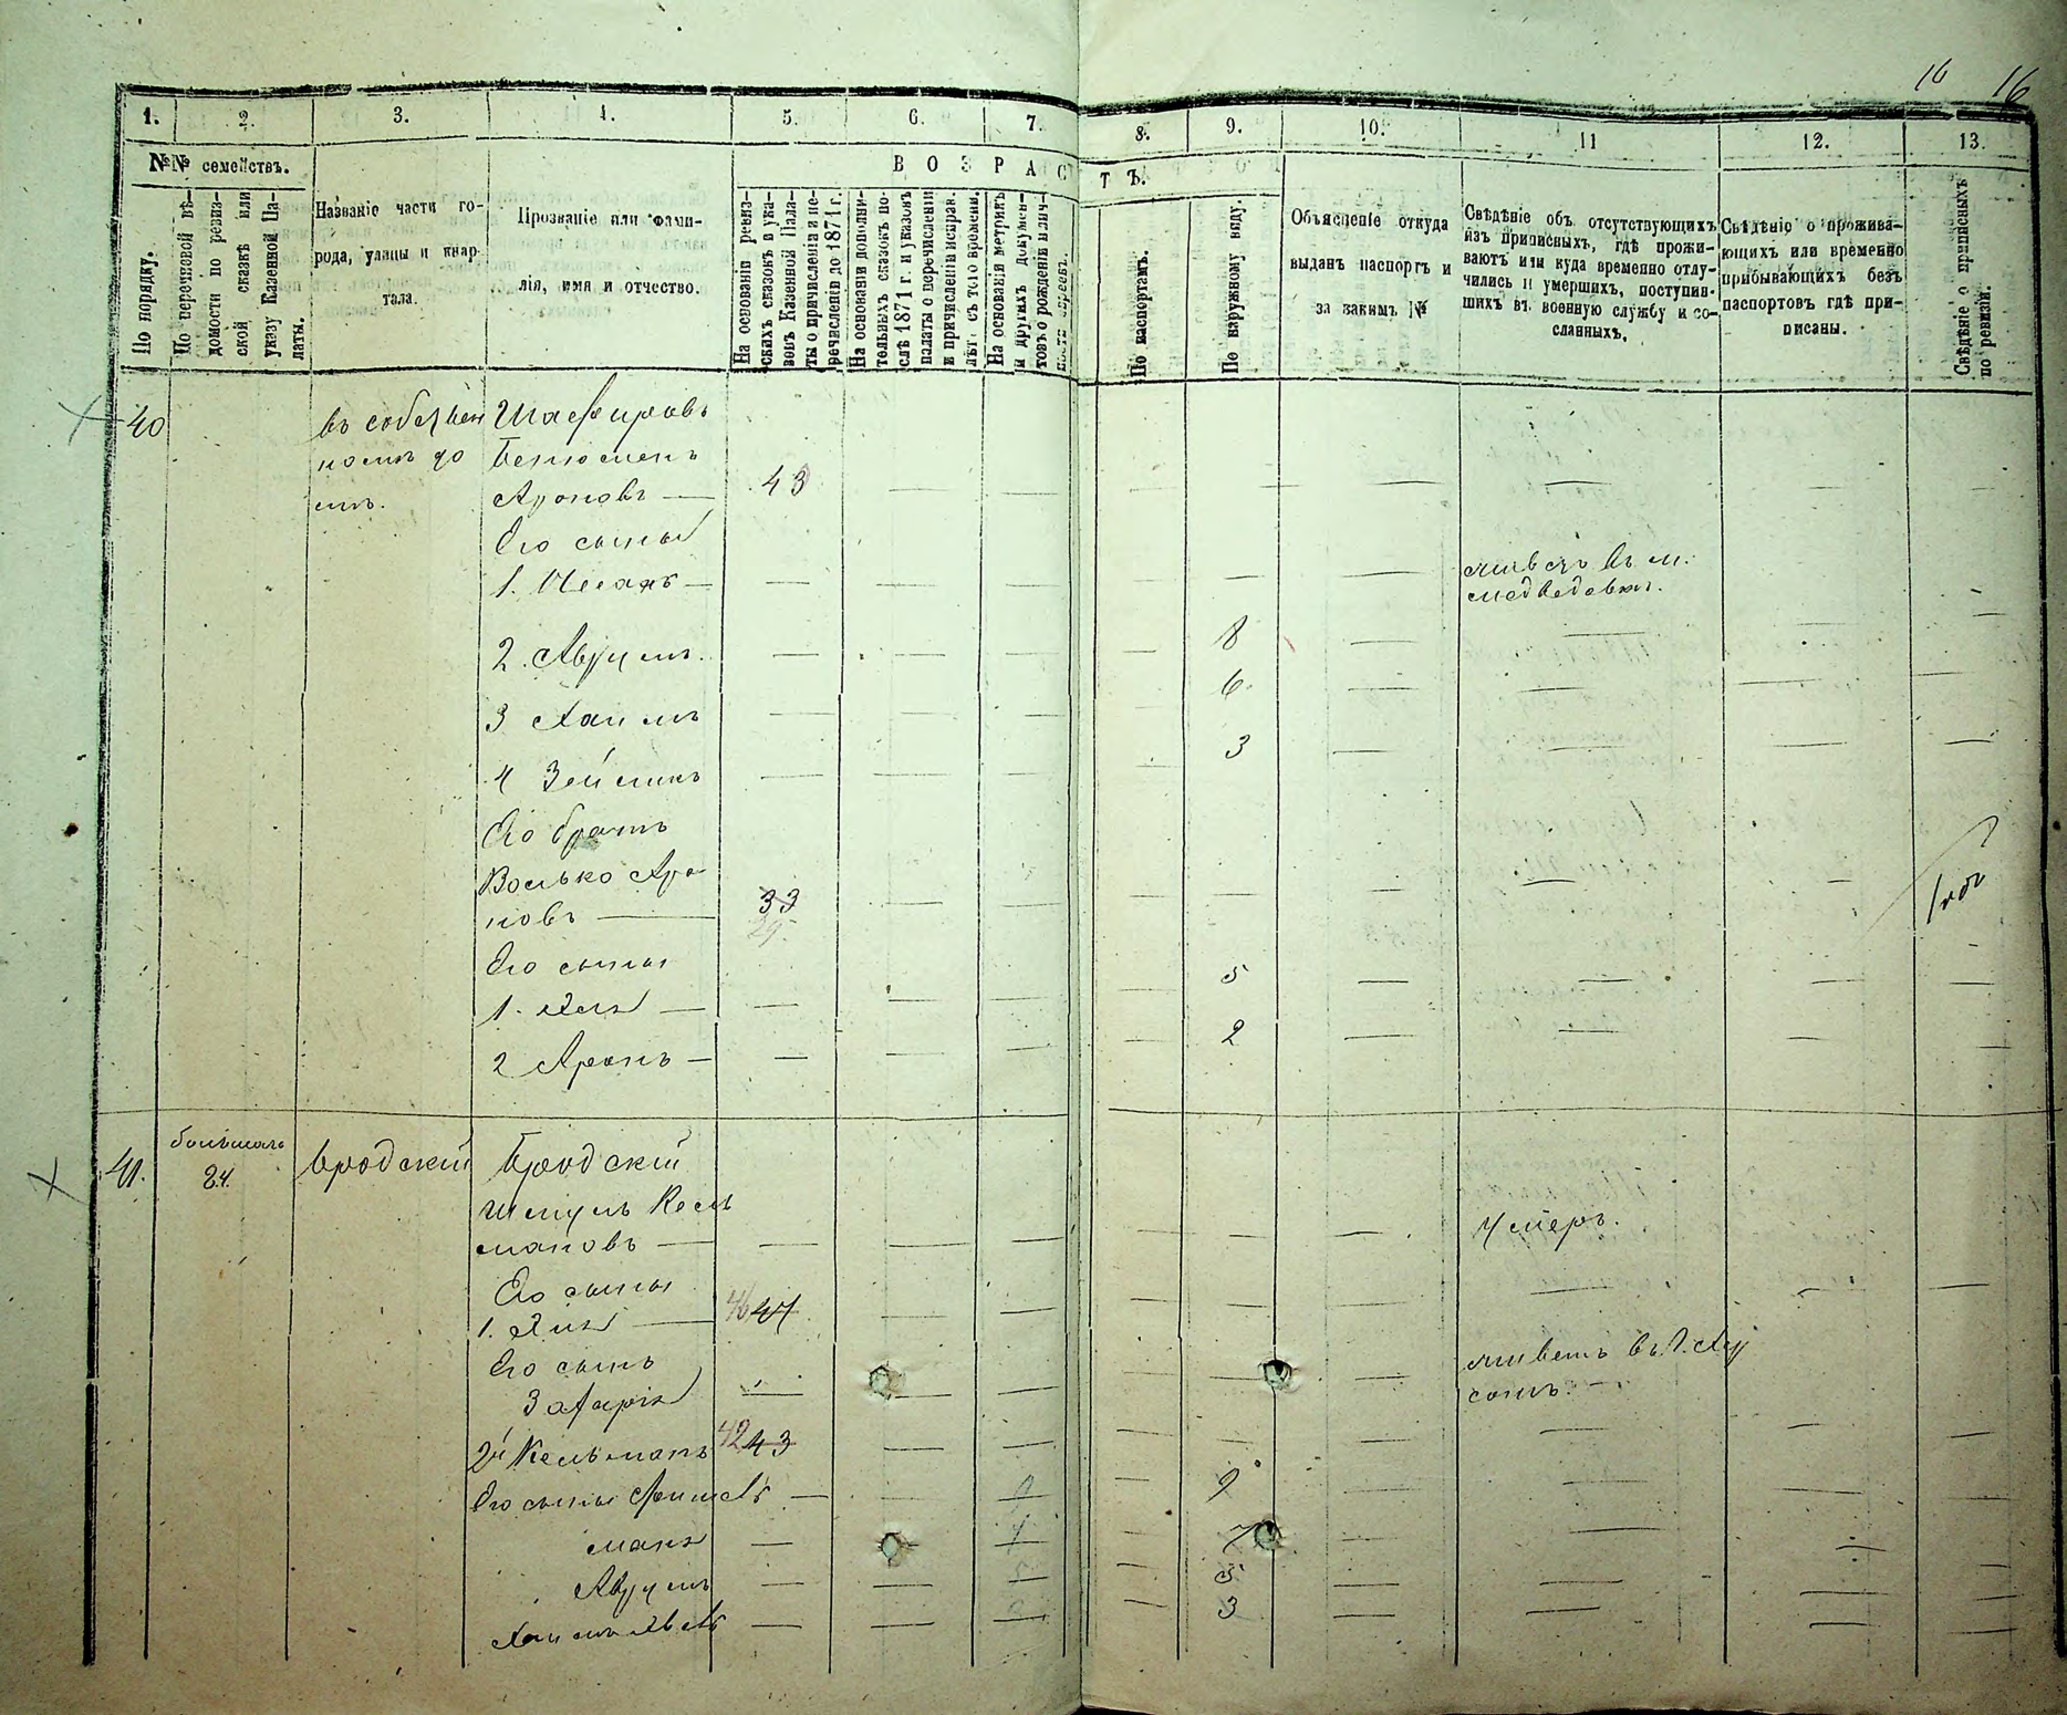 16 16
1. 2. 3. 4. 5. 6. 7. 8. 9. 10. 11 12. 13.
№№ семействъ.
В О З Р А С Т Ъ.
По порядку.
По перечневой вѣ-
домости по ревиз-
ской сказкѣ или
указу Казенной Па-
латы.
Названіе части го-
рода, улицы и квар-
тала.
Прозваніе или фами-
лія, имя и отчество.
На основаніи ревиз-
скихъ сказокъ и ука-
зовъ Казенной Пала-
ты о причисленіи и пе-
речисленіи до 1871 г.
На основаніи дополни-
тельныхъ сказокъ по-
слѣ 1871 г. и указовъ
палаты о перечисленіи
и причисленіи исправ.
лѣт. съ того времени.
На основаніи метрикъ
и другихъ докумен-
товъ о рожденіи и лич-
ности евреевъ.
По паспортамъ.
По наружному виду.
Объясненіе откуда
выданъ паспортъ и
за какимъ №
Свѣдѣніе объ отсутствующихъ
изъ приписныхъ, гдѣ прожи-
ваютъ или куда временно отлу-
чились и умершихъ, поступив-
шихъ въ военную службу и со-
сланныхъ.
Свѣдѣніе о прожива-
ющихъ или временно
прибывающихъ безъ
паспортовъ гдѣ при-
писаны.
Свѣдѣніе о приписныхъ
по ревизіи.
40 въ собствен Шафировъ
номъ до Беньоменъ
мѣ. Ароновъ — 43 — — — — — — — —
Его сыны
1. Исаакъ — — — — — — живетъ въ м.
медведовкѣ.
2. Аврумъ. — — — — 8 — — — —
3 Хаимъ — — — 6. — — — —
4 Зейликъ — — — 3 — — — —
Его братъ
Волько Аро
новъ — 33 — — — — — — —
29
Его сыны
1. Эля — — — — — 5 — — — —
2 Аронъ — — — — — 2 — — — —
41. 24. Бродскій Бродскій
Шмуль Кель
мановъ — — — — — — — Умеръ.
Его сыны
1. Эля — 46 47 — — — — — — —
Его сынъ
Захарія — — — — — живетъ въ г.
2й Кельманъ 42 43 — — — — — — — —
Его сыны — — — 9 — — —
— — — 7 — — —
Аврумъ — — — — 5 — — — —
Хаимъ — — — — 3 — — — —